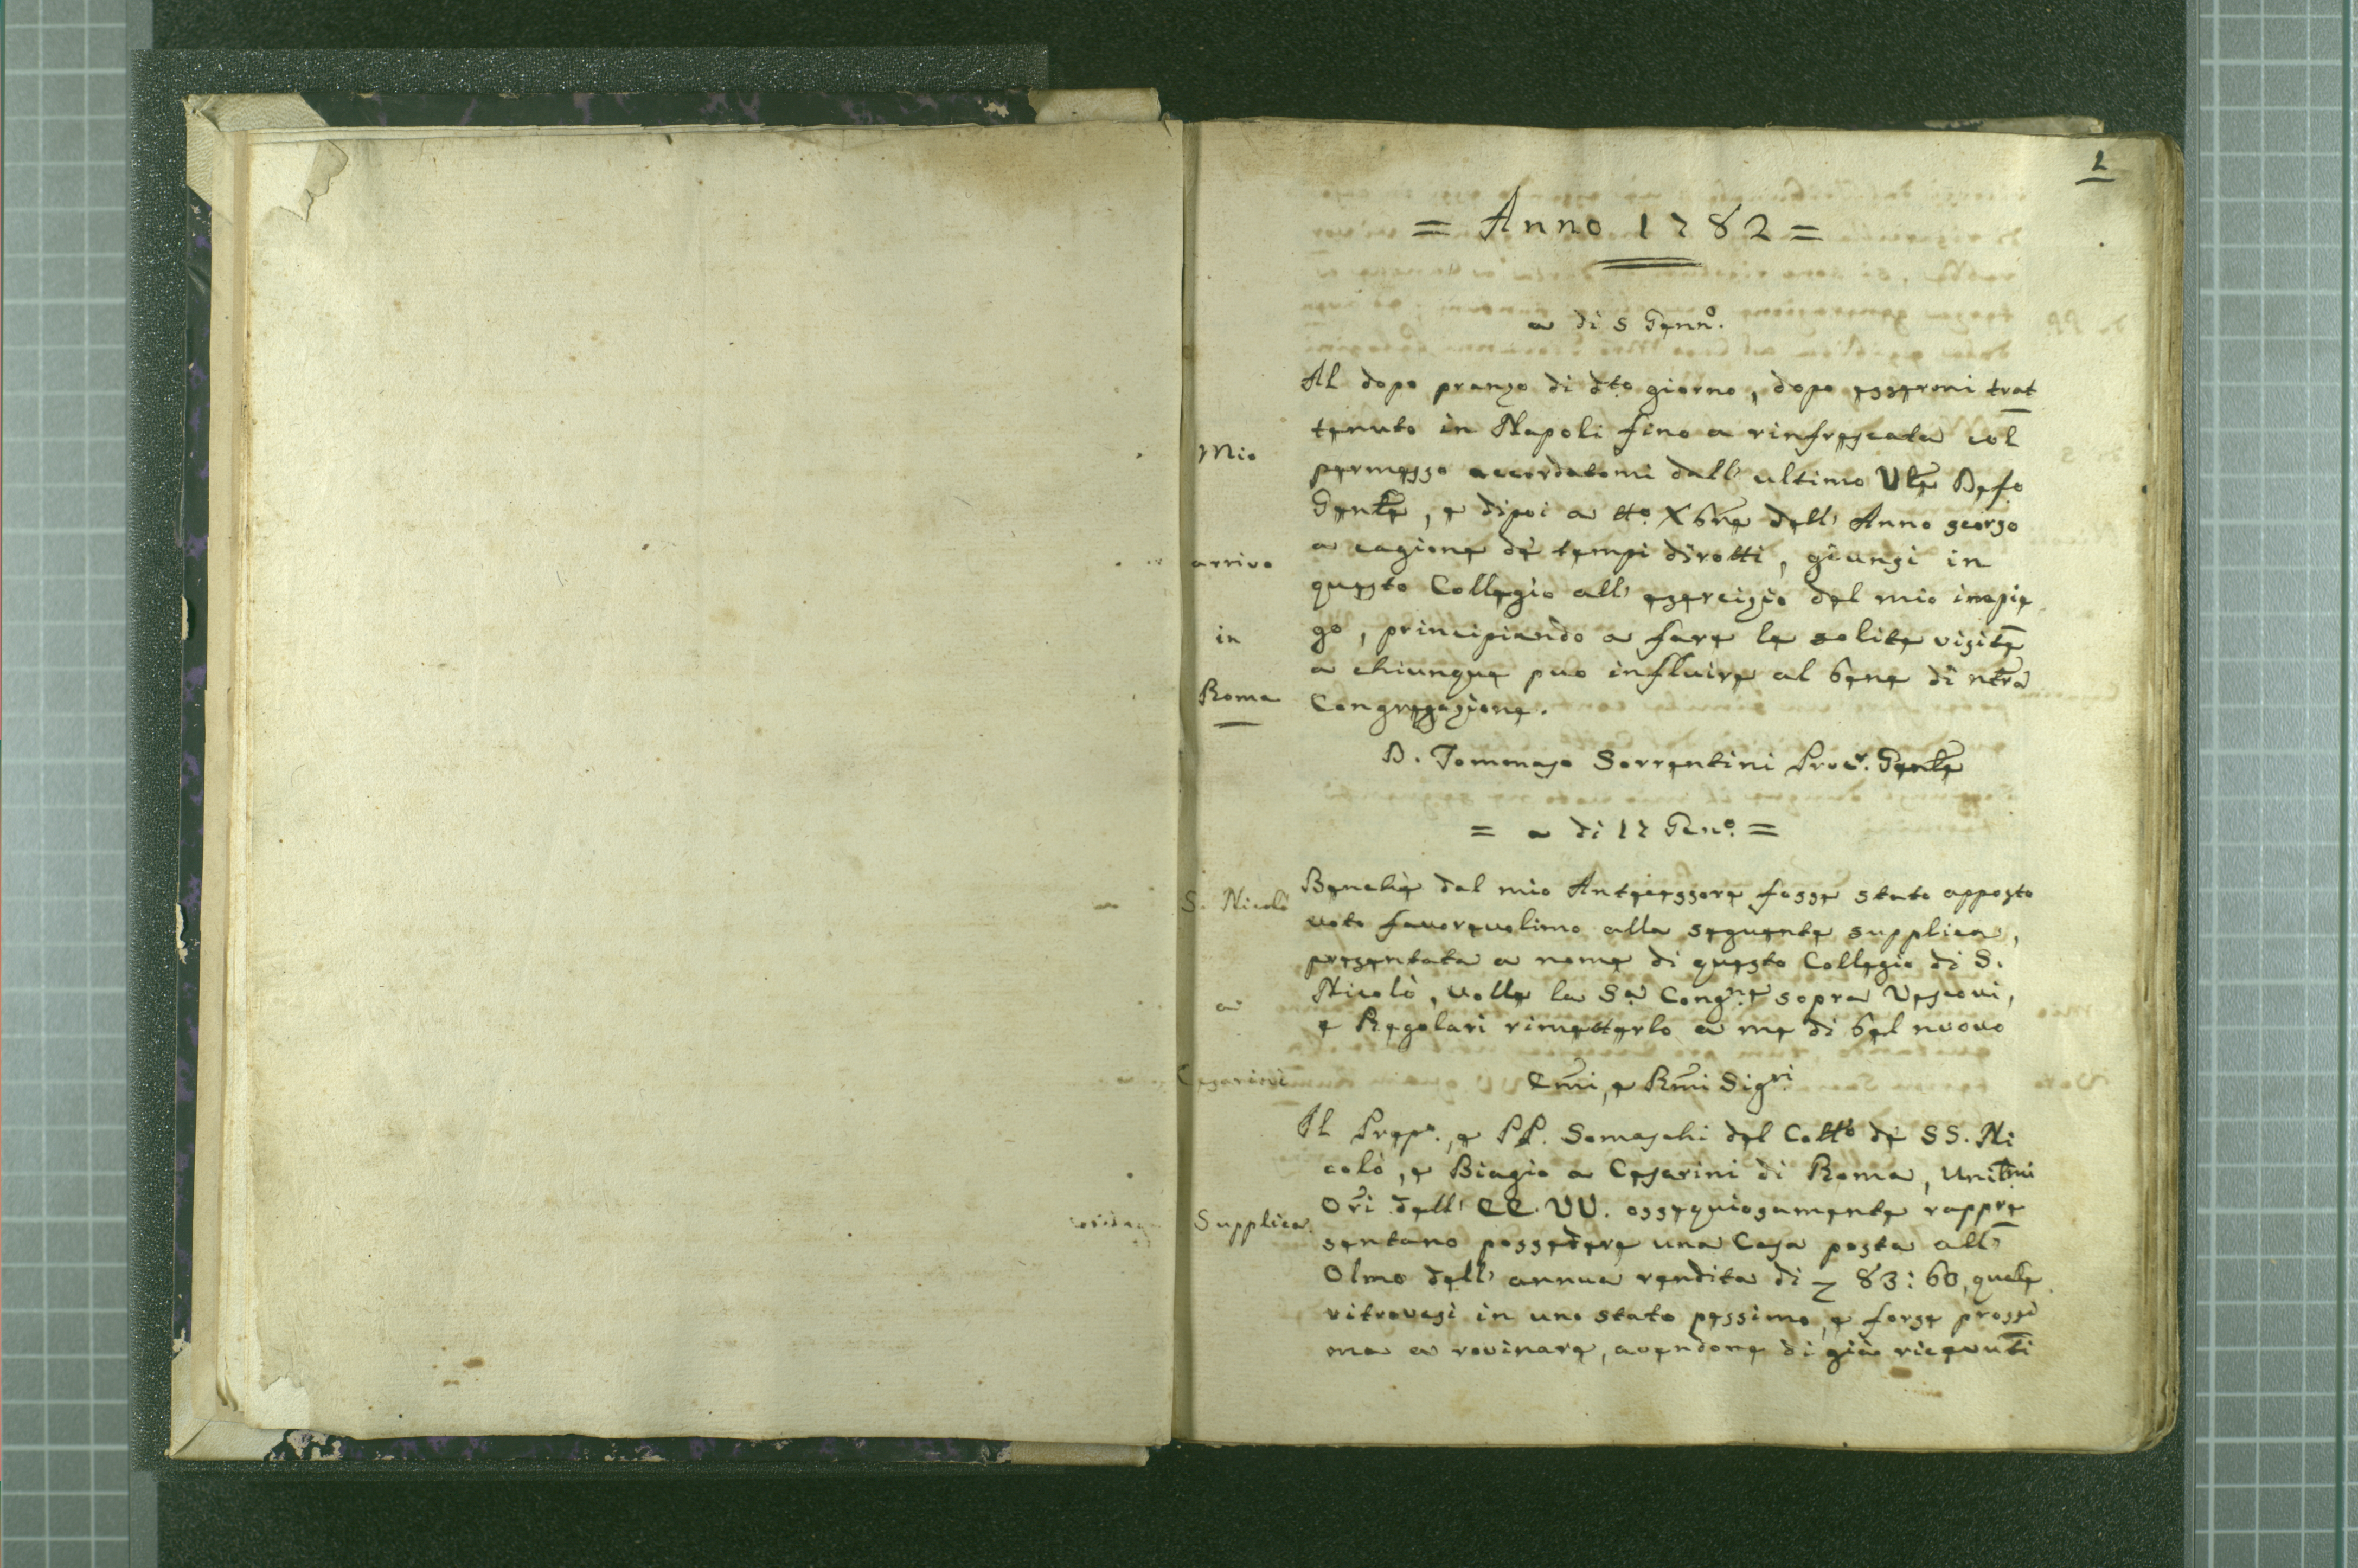 1
= Anno 1782 =
a di 5 Genn.º
Mio
arrivo
in
Roma
Al dopo pranzo di dto. giorno, dopo essermi trat
tenuto in Napoli fino a rinfrescata col
permesso accordatomi dall' ultimo Vle Defo
Genle, e dipoi a tto. Xbre dell' Anno scorso
a cagione de' tempi dirotti, giunsi in
questo Collegio all' esercizio del mio impie
go, principiando a fare le solite visite
a chiunque puo influire al bene di ntra
Congregazione.
D. Tommaso Sorrentini Procr. Genle
= a di 17 Gen.º =
S. Nicolò
a
Cesarini
Benchè dal mio Antecessore fosse stato apposto
voto favorevolimo alla seguente supplica,
presentata a nome di questo Collegio di S.
Nicolò, volle la Sa Congne sopra Vescovi,
e Regolari rimetterlo a me di bel nuovo
Emi, e Rmi Sigri
Supplica.
Il Prepo., e PP. Somaschi del Collo de SS. Ni
colò, e Biagio a Cesarini di Roma, Umilmi
Ori dell' EE. VV. ossequiosamente rappre
sentano possedere una Casa posta all'
Olmo dell' annua rendita di 83: 60, quale
ritrovasi in uno stato pessimo, e forse prossi
ma a rovinare, avendone di già ricevuti